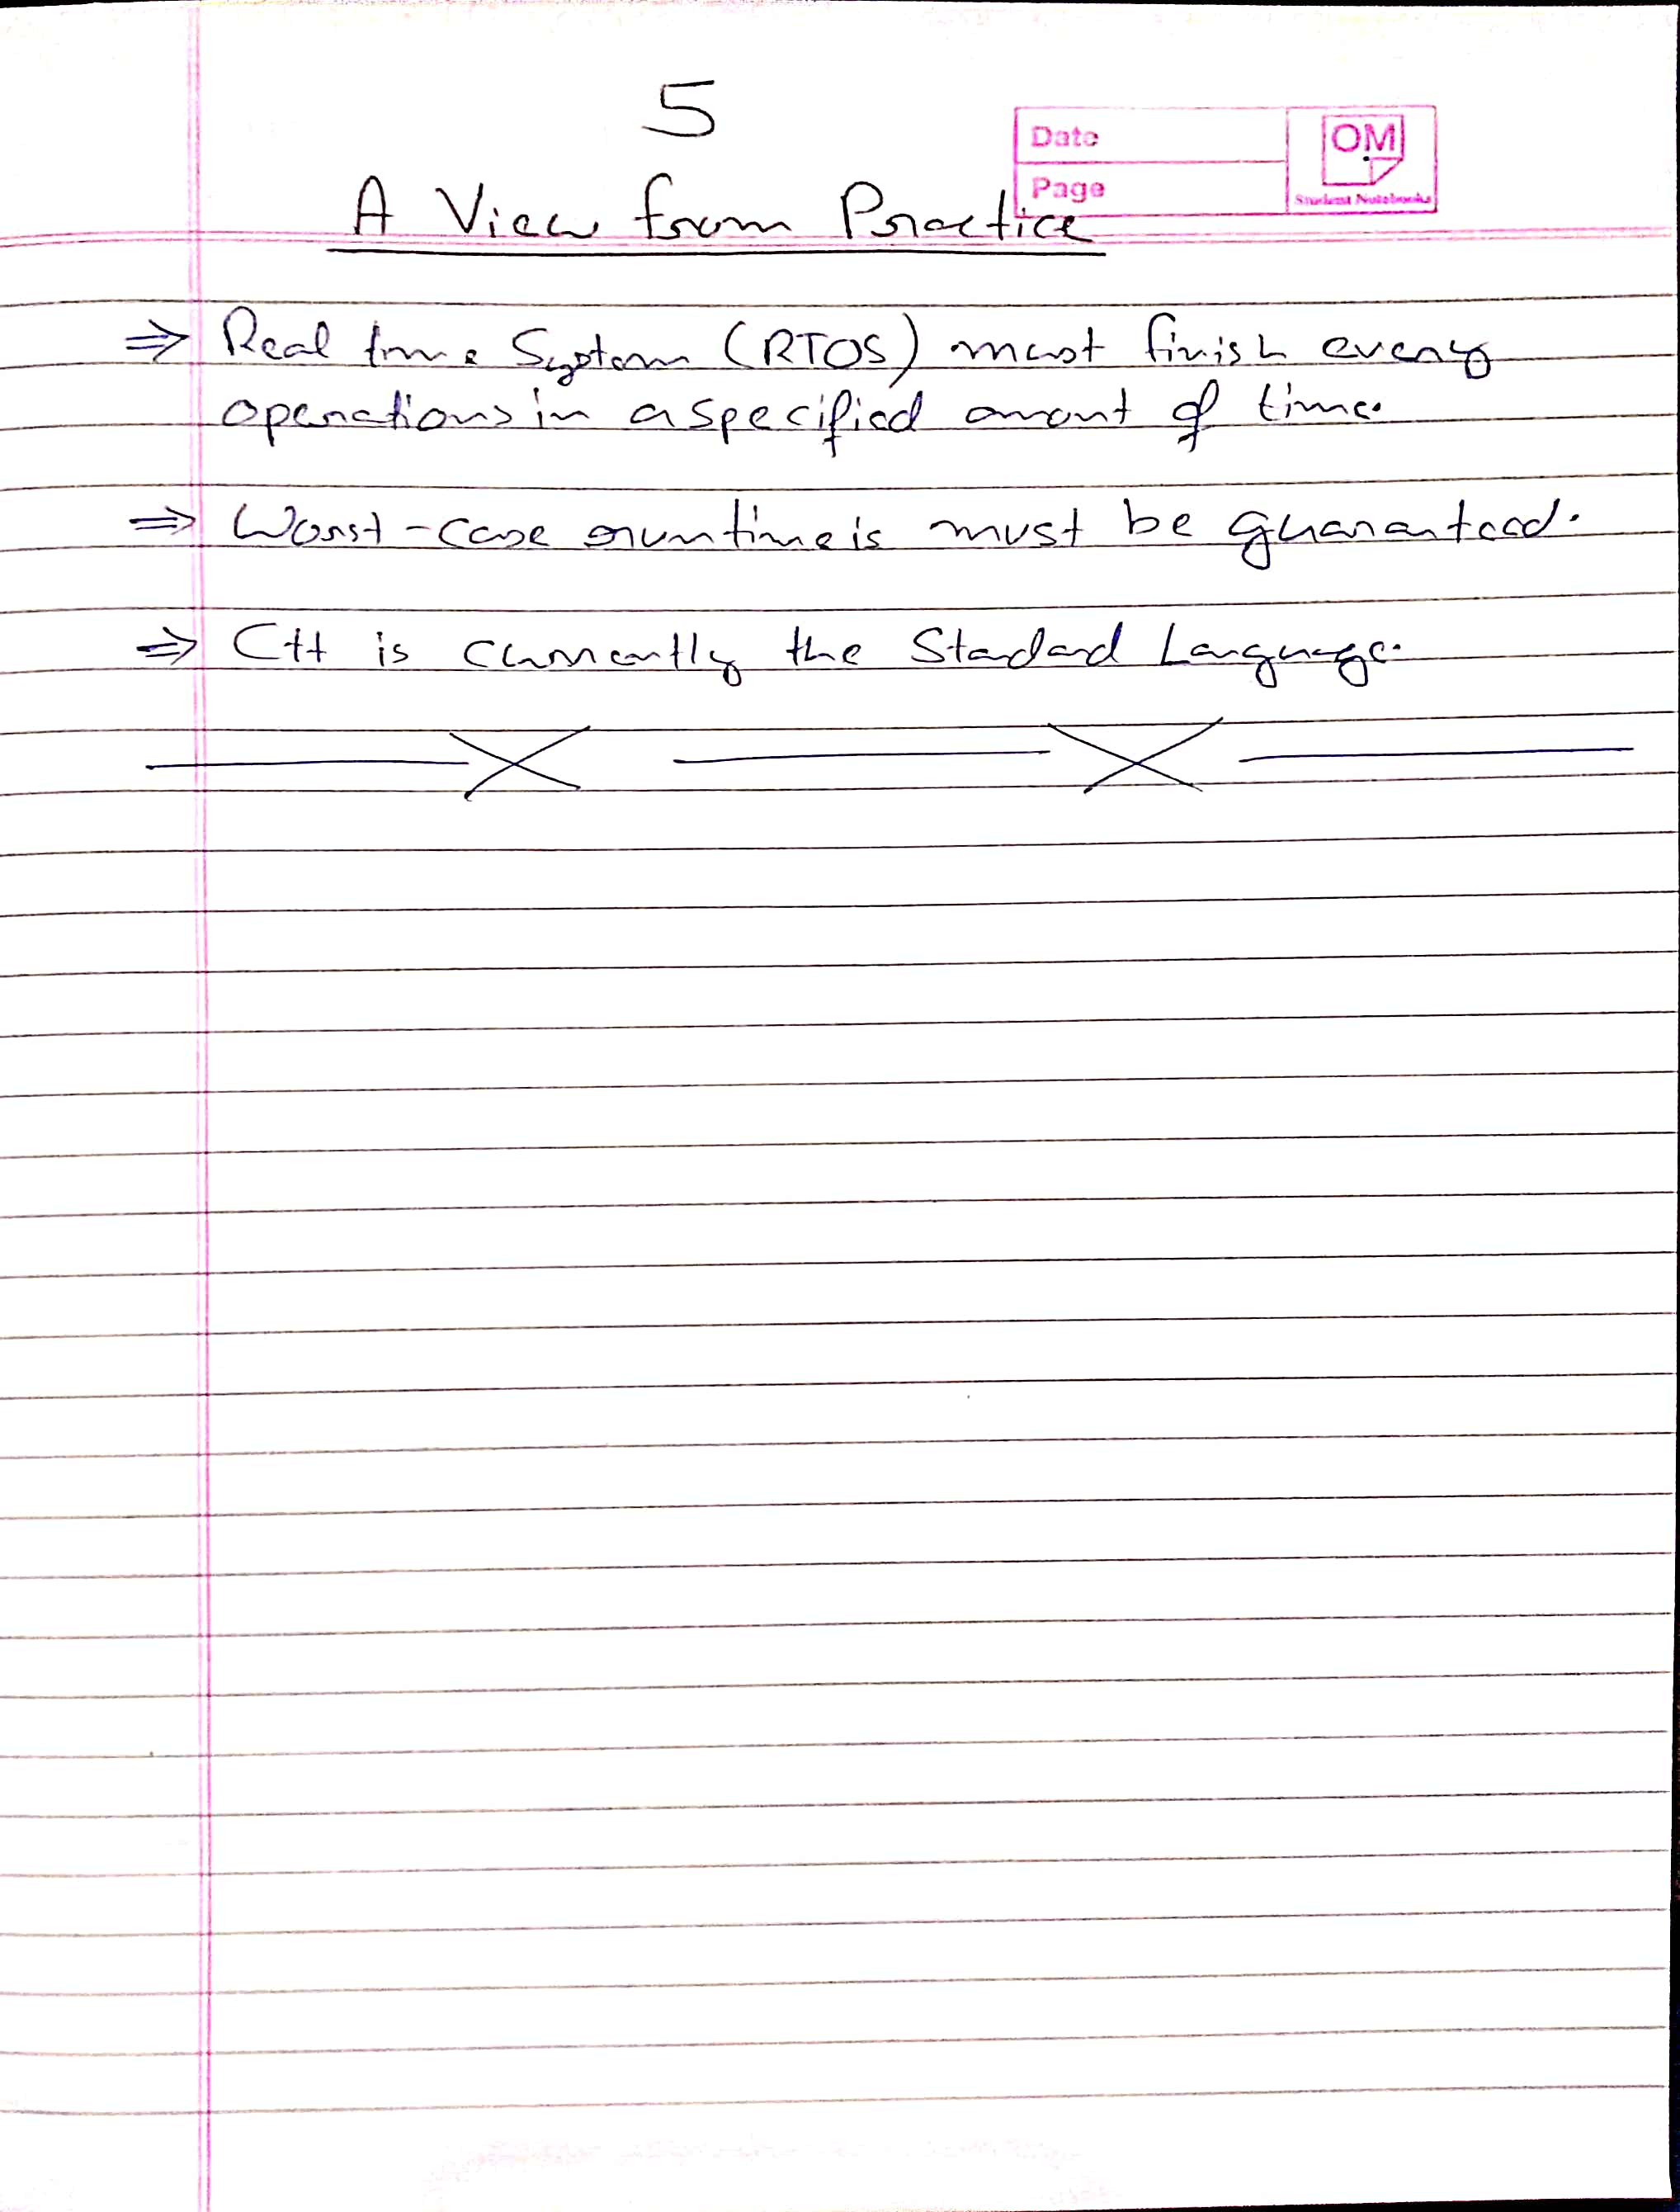 5
Date
OM
Page
Student Notebooks
A View from Practice
⇒ Real time System (RTOS) must finish every
operations in a specified amont of time.
⇒ Worst-case runtime is must be guaranteed.
⇒ C++ is currently the Standard Language.